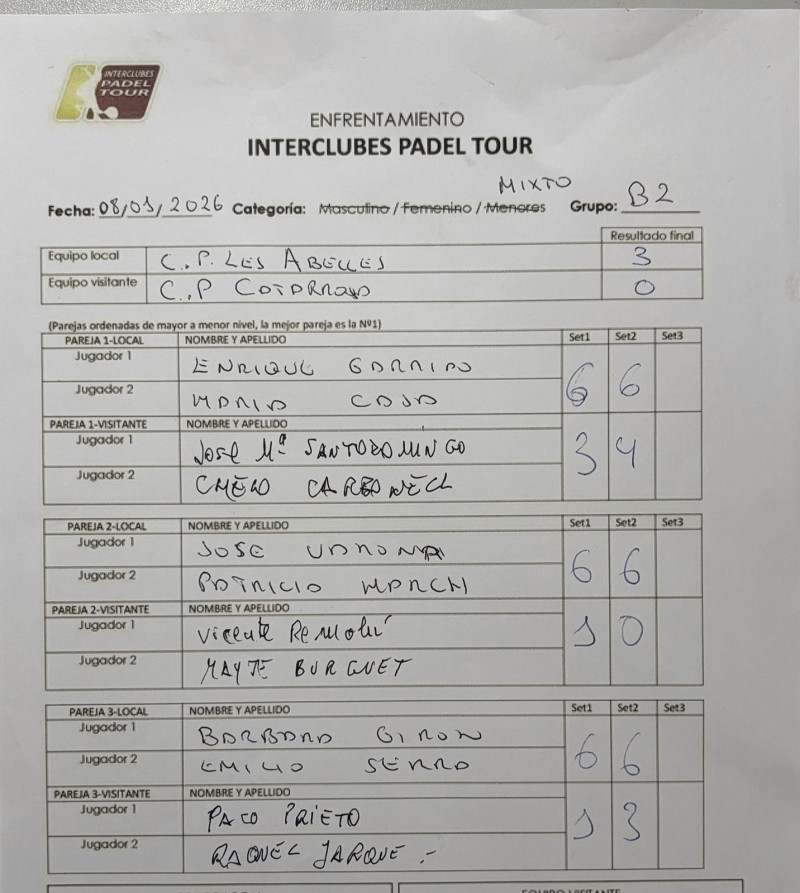 INTERCLUBES
PADEL
TOUR
ENFRENTAMIENTO
INTERCLUBES PADEL TOUR
MIXTO
Fecha: 08/01/2026 Categoría: Masculino / Femenino / Menores Grupo: B2
Resultado final
Equipo local C.P. LES ABELLES 3
Equipo visitante C.P 0
(Parejas ordenadas de mayor a menor nivel, la mejor pareja es la Nº1)
PAREJA 1-LOCAL NOMBRE Y APELLIDO Set1 Set2 Set3
Jugador 1 ENRIQUE GARRIDO
6 6
Jugador 2 MARIA CAJA
PAREJA 1-VISITANTE NOMBRE Y APELLIDO
Jugador 1 José Mª SANTODOMINGO
3 4
Jugador 2 CHELO CARBONELL
PAREJA 2-LOCAL NOMBRE Y APELLIDO Set1 Set2 Set3
Jugador 1 JOSE VARONA
6 6
Jugador 2 PATRICIA MARCH
PAREJA 2-VISITANTE NOMBRE Y APELLIDO
Jugador 1 Vicente Remolí
1 0
Jugador 2 MAYTE BURGUET
PAREJA 3-LOCAL NOMBRE Y APELLIDO Set1 Set2 Set3
Jugador 1 BARBARA GIRON
6 6
Jugador 2 EMILIO SERRA
PAREJA 3-VISITANTE NOMBRE Y APELLIDO
Jugador 1 PACO PRIETO
1 3
Jugador 2 RAQUEL JARQUE.-
EQUIPO VISITANTE